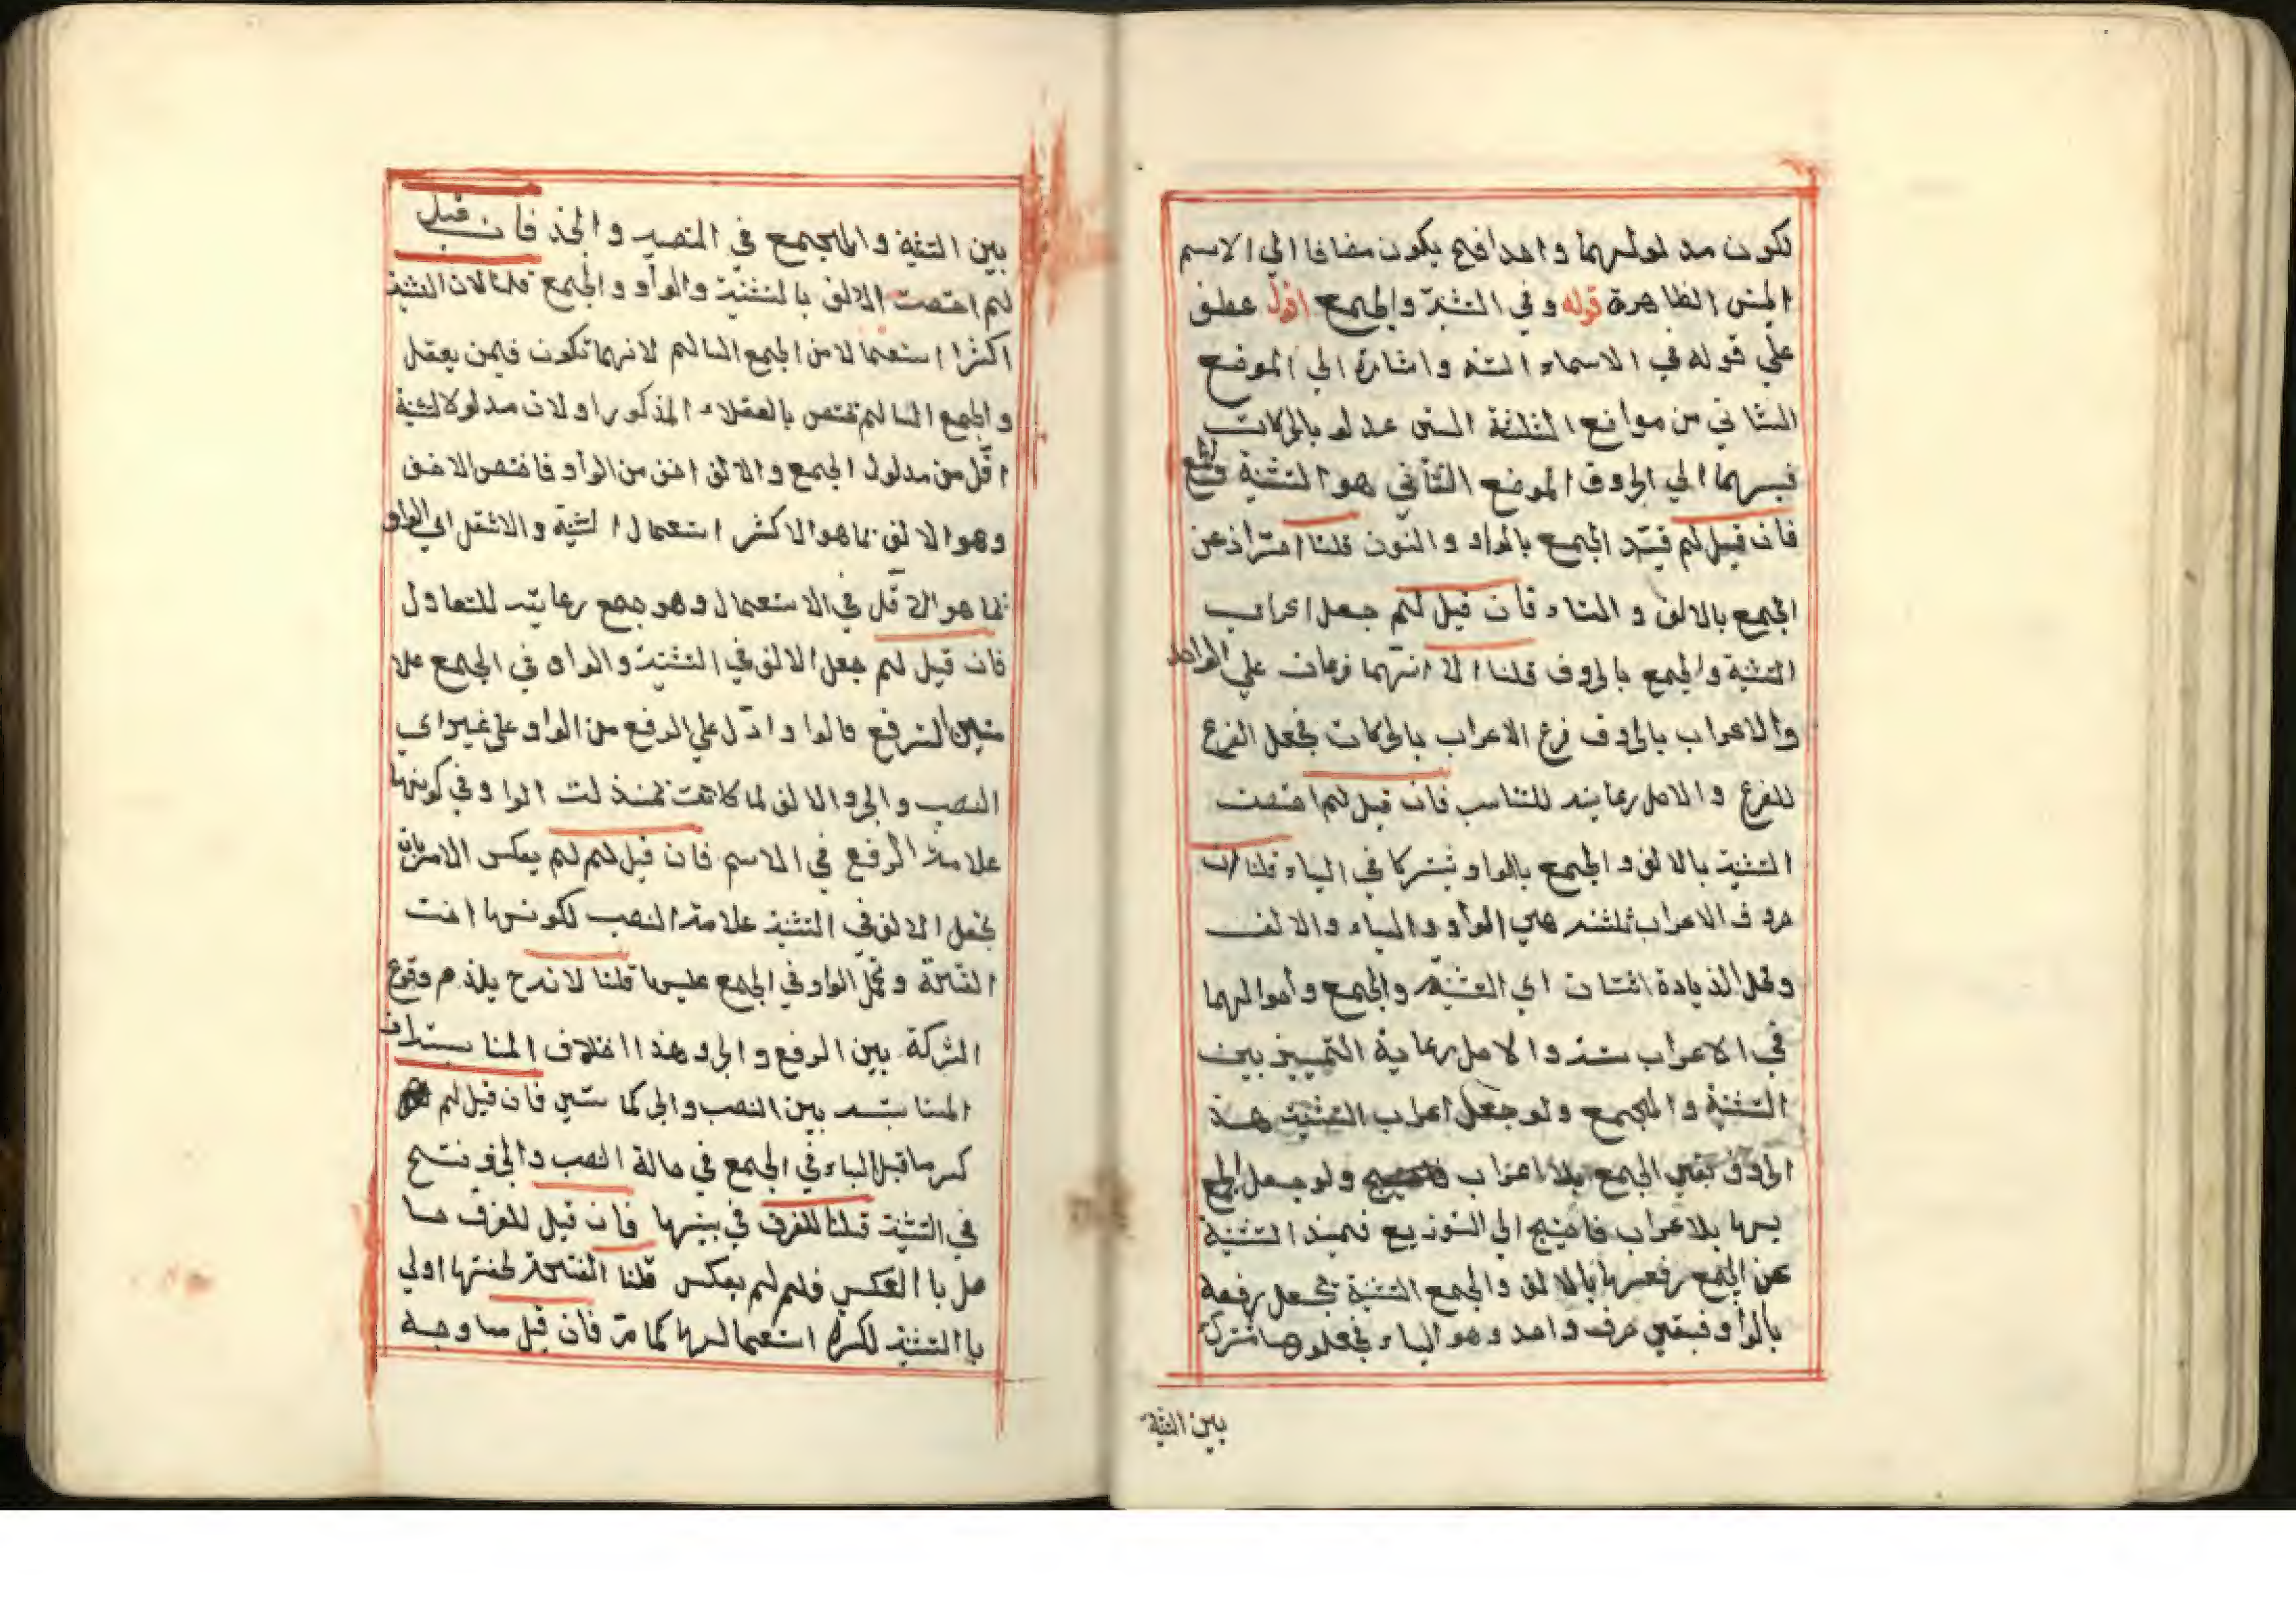 لكون مدلولهما واحدا فح يكون مضافا الي الاسم
الجنس الظاهرة قوله وفي التثنية والجمع اقول عطف
علي قوله في الاسماء الستة واشارة الي الموضع
الثاني من مواضع الثلثة التي عدلو بالحركات
فيهما الي الحروف الموضع الثاني هو التثنية والجمع
فان قيل لم قيد الجمع بالواو والنون قلنا احتراز عن
الجمع بالالف والتاء فان قيل لم جعل اعراب
التثنية والجمع بالحروف قلنا الا انهما فرعان علي الواحد
والاعراب بالحروف فرع الاعراب بالحركات فجعل الفرع
للفرع والاصل رعاية للتناسب فان قيل لم اختصت
التثنية بالالف والجمع بالواو ثم شركا في الياء قلنا ان
حروف الاعراب ثلثة هي الواو والياء والالف
ومحل الزيادة اثنان اي التثنية والجمع واحوالهما
في الاعراب ستة والاصل رعاية التمييز بين
التثنية والجمع ولو جعل اعراب التثنية هذه
الحروف بقي الجمع بلا اعراب ولو جعل الجمع
بها بلا اعراب فاحتيج الي التوزيع فميز التثنية
عن الجمع رفعها بالالف والجمع التثنية بجعل رفعه
بالواو فبقي حرف واحد وهو الياء فجعلوها مشتركة
بين التثنية
بين التثنية والجمع في النصب والجر فان قيل
لم اختصت الالف بالتثنية والواو والجمع قلنا لان التثنية
اكثر استعمالا من الجمع السالم لانهما تكون فيمن يعقل
والجمع السالم تختص بالعقلاء المذكور او لان مدلول التثنية
اقل من مدلول الجمع والالف اخف من الواو فاختص الاخف
وهو الالف بما هو الاكثر استعمالا لتثنية والاثقل اي الواو
بما هو الاقل في الاستعمال وهو جمع رعاية للتعادل
فان قيل لم جعل الالف في التثنية والواو في الجمع علا
متين للرفع قالوا وادل علي الرفع من الواو علي غير اي
النصب والجر والالف لما كانت تمنزلت الواو في كونها
علامة الرفع في الاسم فان قيل لم لم يعكس الامران
بجعل الالف في التثنية علامة النصب لكونها اخت
الفتحة ومحل الواو في الجمع عليها قلنا لانه ح يلزم وقوع
الشركة بين الرفع والجر وهذا اخلاف المناسبة لان
المناسبة بين النصب والجر كما ستبين فان قيل لم
كسر ما قبل الياء في الجمع في حالة النصب والجر وفتح
في التثنية قلنا للفرق في بينهما فان قيل للفرق حا
صل با العكس فلم لم يعكس قلنا الفتحة لخفتها اولي
با التثنية لكثرة استعمالها كما مر فان قيل ما وجه